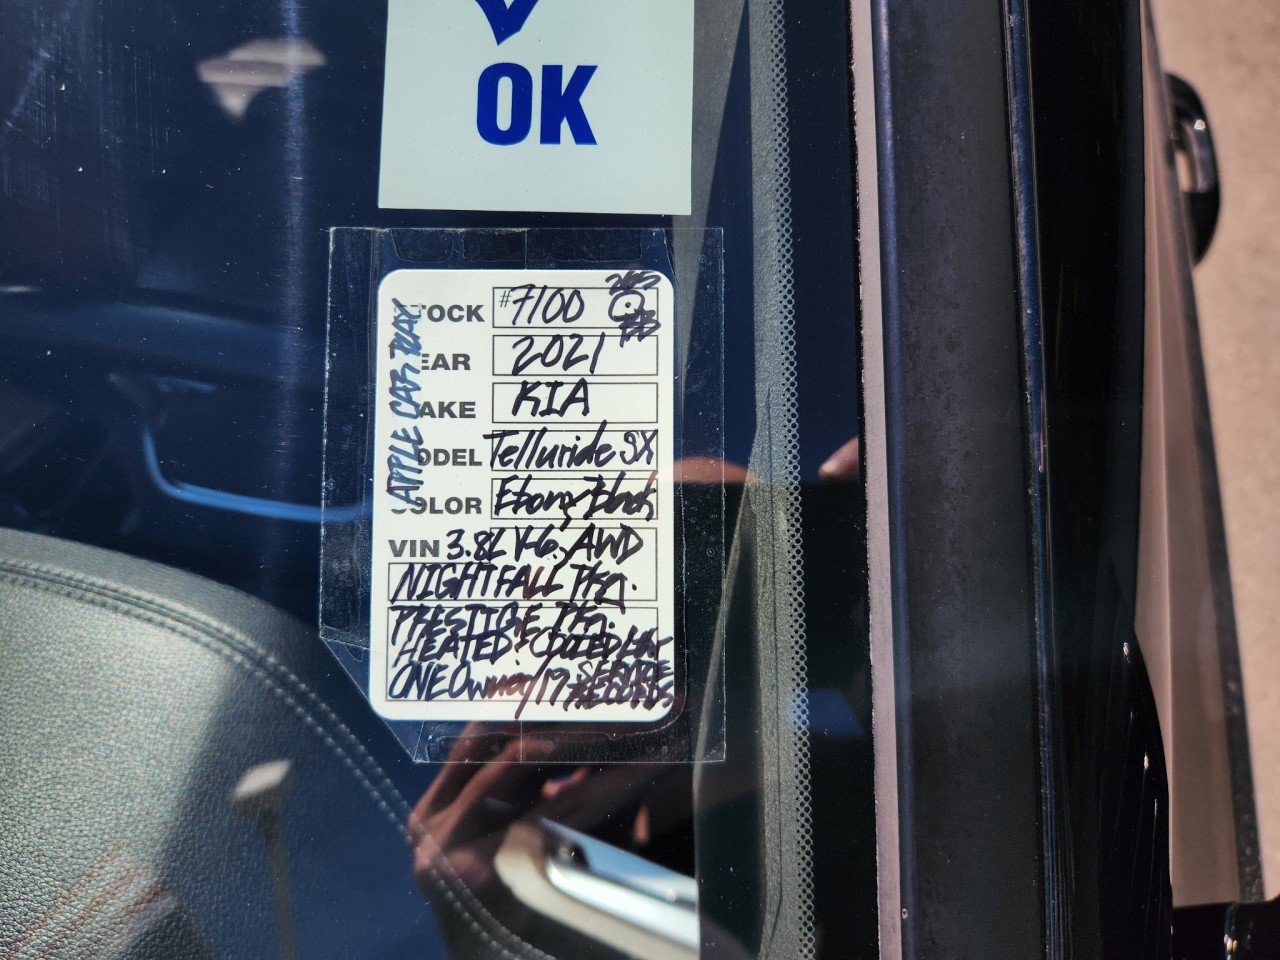 OK
TOCK #7100
EAR 2021
AKE KIA
ODEL Telluride SX
OLOR Ebony Black
VIN 3.8L V-6, AWD
NIGHTFALL Pkg.
PRESTIGE Pkg.
HEATED & COOLED
ONE Owner/19 SERVICE
RECORDS
APPLE CAR PLAY